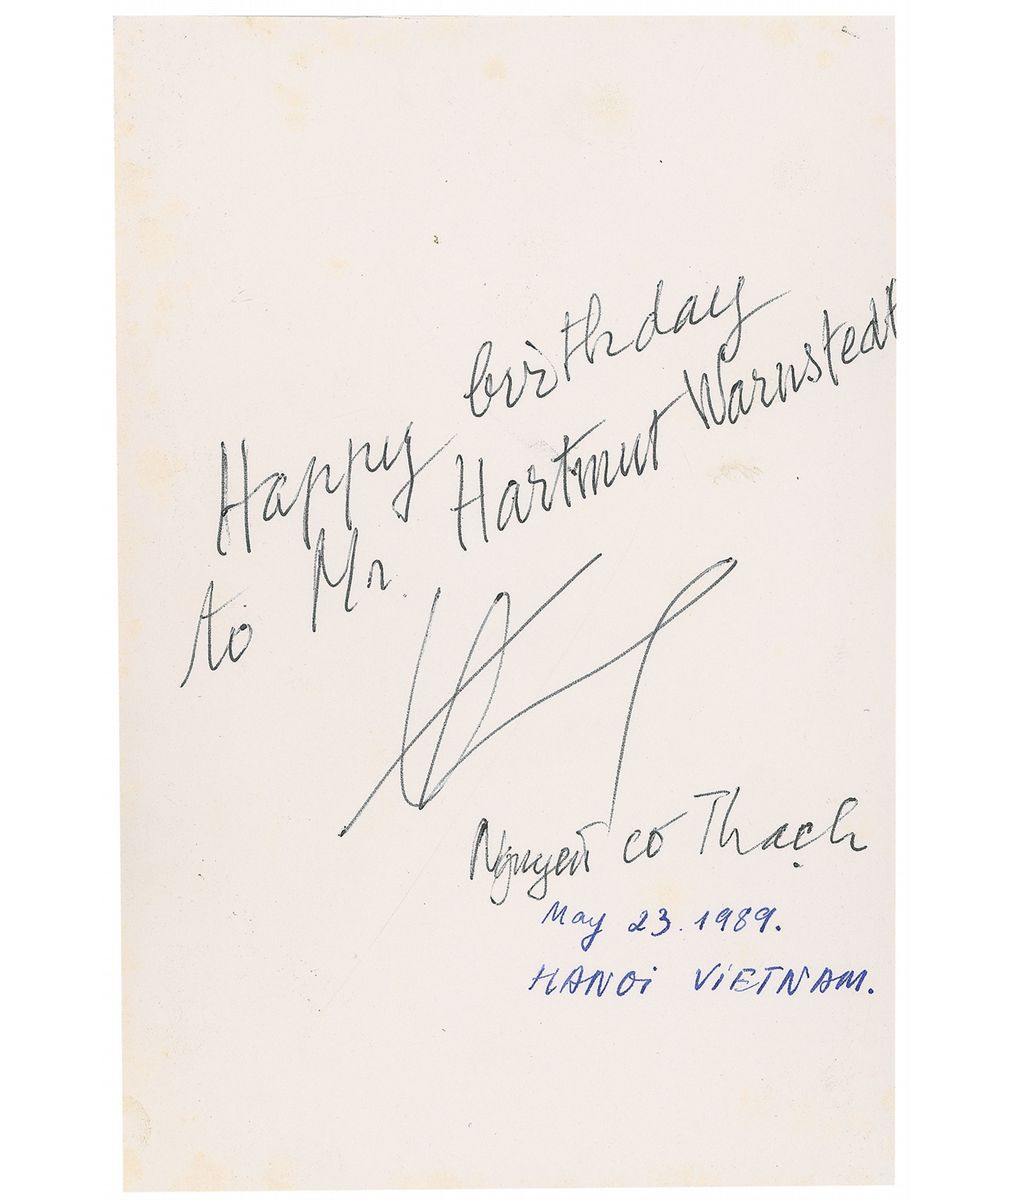 Happy birthday
to Mr. Hartmut Warnstedt
Nguyen co Thạch
May 23.1989.
HANOi ViETNAM.